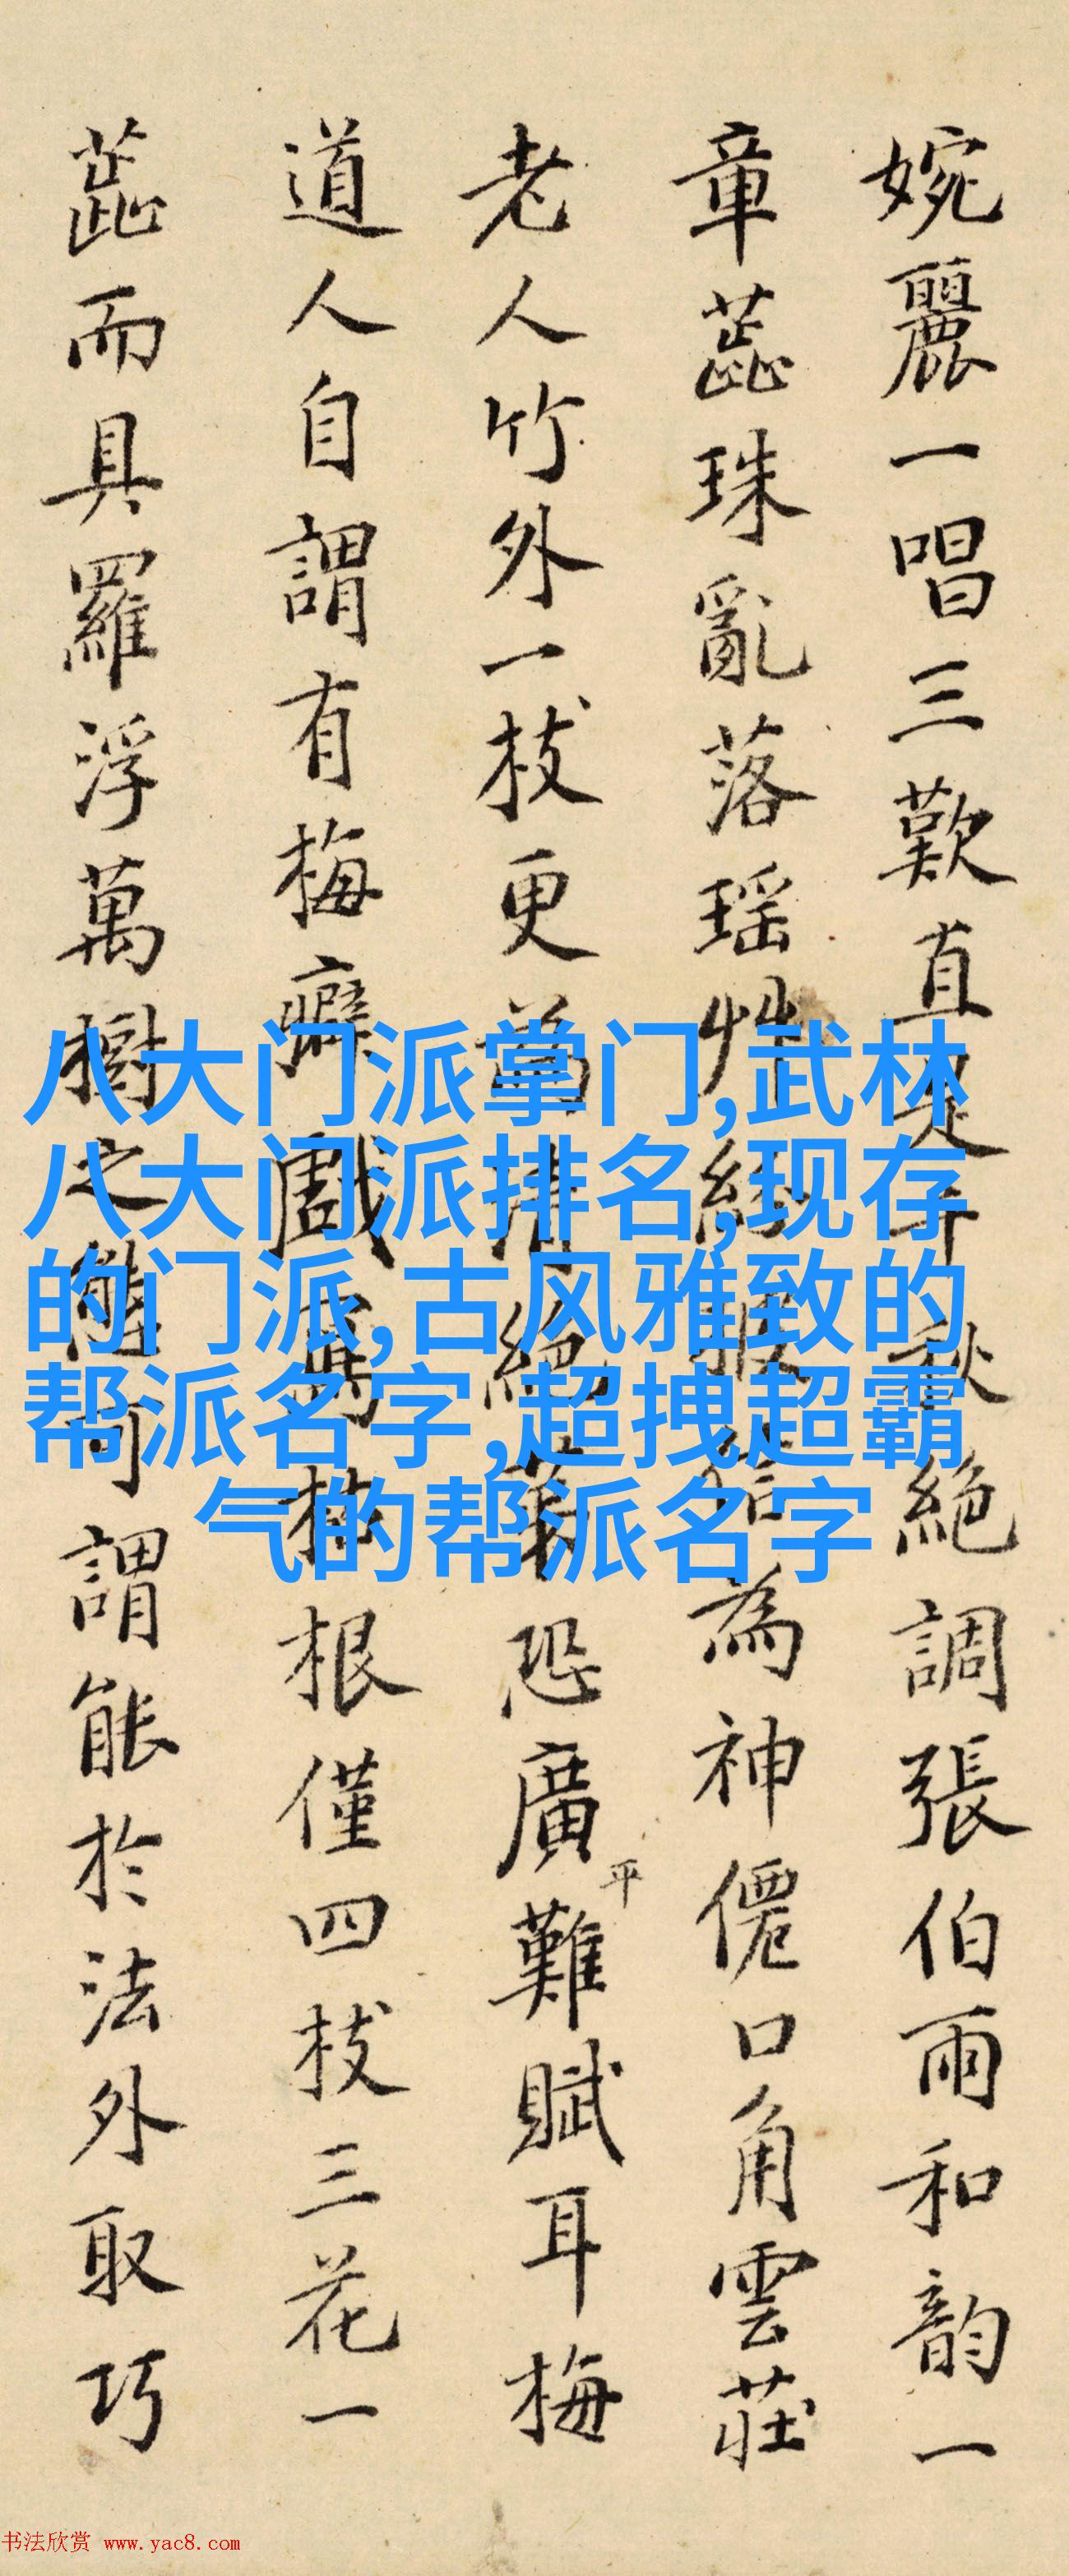 婉麗一唱三歎直是千秋絕調張伯雨和韵一
章蕋珠亂落瑶艸為神僊口角雲莊
老人竹外一枝更為清絕第恐廣平難賦耳梅
道人自謂有梅癖戲寫梅根僅四枝三花一
蕋而具羅浮萬樹之可謂能於法外取巧
八大门派掌门,武林
八大门派排名,现存
的门派,古风雅致的
帮派名字,超拽超霸
气的帮派名字
书法欣赏 www.yac8.com